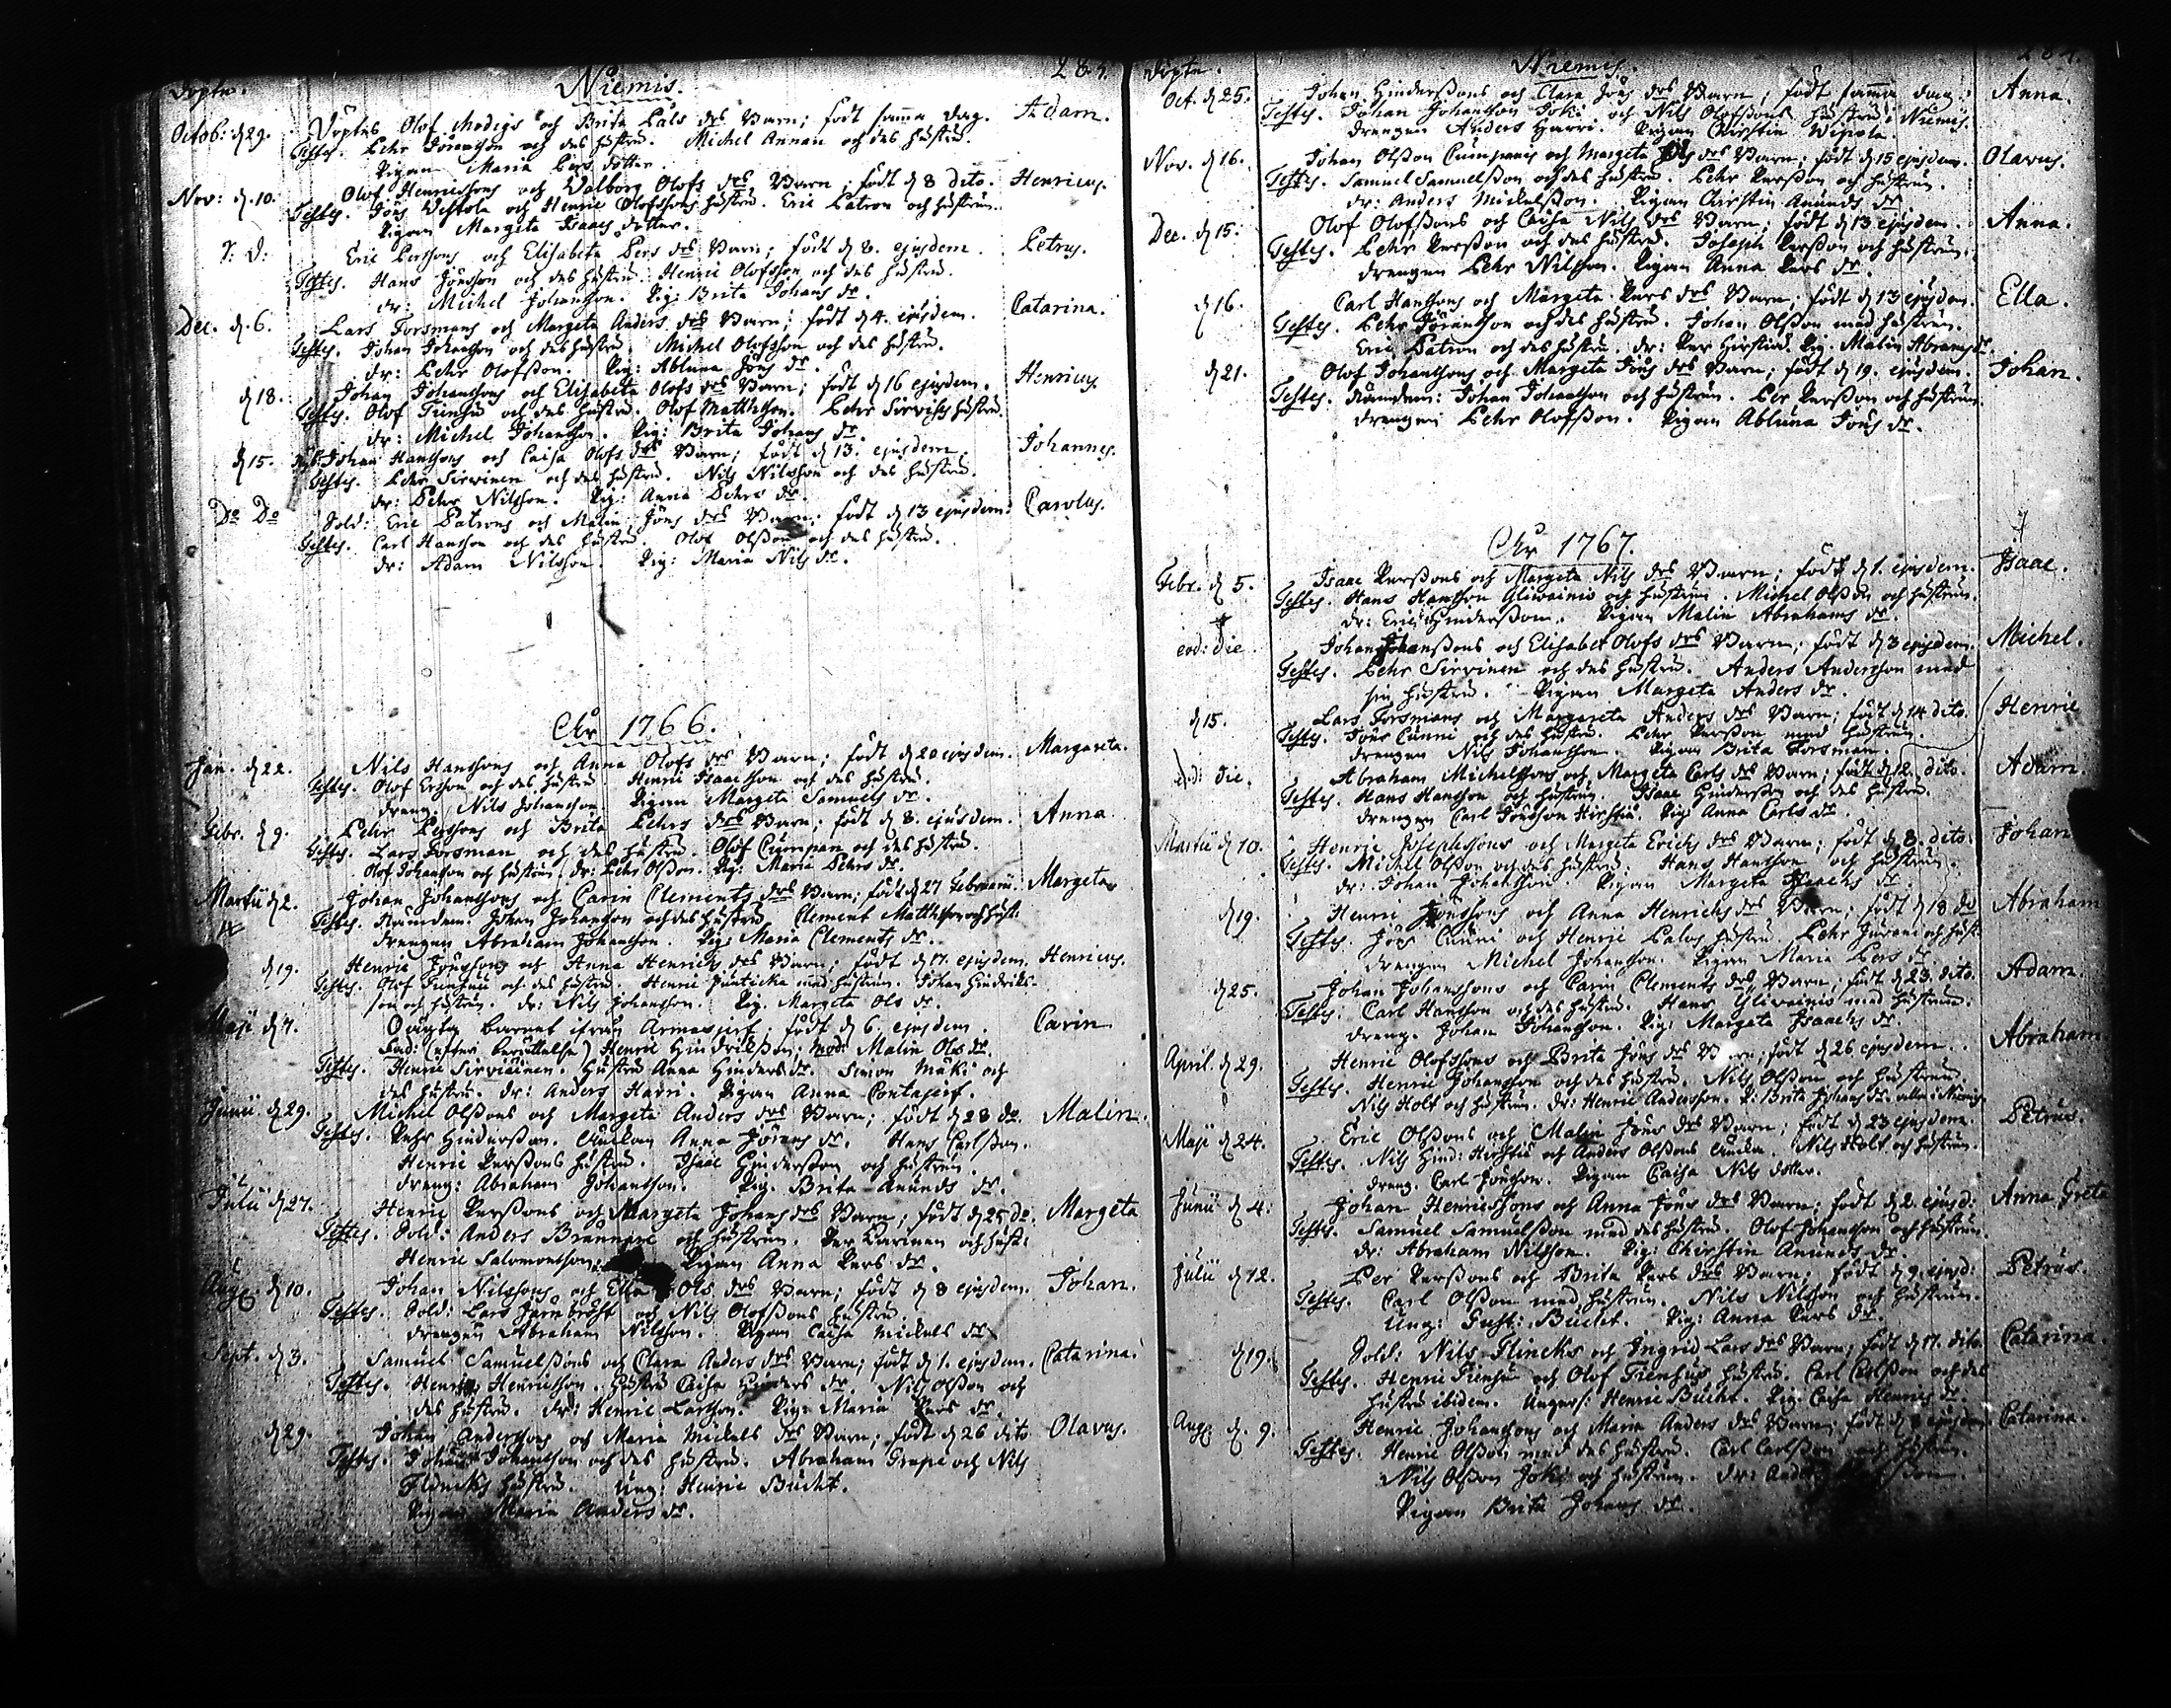 Döpte. Niemis. 285.
Octob: d. 29. Döptes Olof Modigs och Brita Påls drs Barn; född samma dag. Adam.
Testes. Pehr Göransson och des hustru. Michel Annan och des hustru.
Pigan Maria Lars dotter.
Nov: d. 10. Olof Henricssons och Walborg Olofs drs Barn; född d 8 dito. Henricus.
Testes. Jöns Westola och Henric Olofssons hustru. Eric Patron och hustrun.
Pigan Margeta Isaacs dotter.
Eric Perssons och Elisabeta Pers drs Barn; född d 8. ejusdem. Petrus.
Testes. Hans Jönsson och des hustru. Henric Olofsson och des hustru.
dr: Michel Johansson. Pig: Brita Johans dr.
Dec. d. 6. Lars Forsmans och Margeta Anders drs Barn; född d 4. ejusdem. Catarina.
Testes. Johan Johansson och des hustru. Michel Olofsson och des hustru.
dr: Pehr Olofsson. Pig: Abluna Jöns dr.
d 18. Johan Johanssons och Elisabeta Olofs drs Barn; född d 16 ejusdem. Henricus.
Testes. Olof Fienhu och des hustru. Olof Matthsson. Pehr Sirvis hustru
dr: Michel Johansson. Pig: Brita Johans dr.
d 15. Johan Hanssons och Caisa Olofs drs Barn; född d 13. ejusdem. Johannes.
Testes. Pehr Sirvinen och des hustru. Nils Nilsson och des hustru.
dr: Pehr Nilsson. Pig: Anna Pehrs dr.
Do Do Sold: Eric Patrons och Malin Jöns drs Barn; född d 13 ejusdem. Carolus.
Testes. Carl Hansson och des hustru. Olof Olsson och des hustru.
dr: Adam Nilsson. Pig: Maria Nils dr.
Åhr 1766.
Jan. d 22. Nils Hanssons och Anna Olofs drs Barn; född d 20 ejusdem. Margareta.
Testes. Olof Ersson och des hustru Henric Isaacsson och des hustru.
dreng. Nils Johansson. Pigan Margeta Samuels dr.
Febr. d 9. Pehr Perssons och Brita Pehrs drs Barn; född d 8. ejusdem. Anna.
Testes. Lars Forsman och des hustru. Olof Cumpan och des hustru.
Olof Johansson och hustrun, dr: Pehr Olsson. Pig: Maria Pehrs dr.
Martii d 2. Johan Johanssons och Carin Clements drs Barn; född d 27 Februarii. Margeta.
Testes. Nämdem: Johan Johansson och des hustru. Clement Matthsson och hust:
drengen Abraham Johansson. Pig: Maria Clements dr.
d 19. Henric Jönssons och Anna Henrichs drs Barn; född d 17. ejusdem. Henricus.
Testes. Olof Fienhu och des hustru. Henric Junticka med hustrun. Johan Hindriks-
son och hustrun. dr: Nils Johansson. Pig. Margeta Ols dr.
Maji d 7. Oägta barnet ifrån Armasjerf; född d 6. ejusdem. Carin.
Fad: (efter berättelse) Henric Hindrikson; mod: Malin Ols dr.
Testes. Henric Sirviäinen. Hustru Anna Hinders dr. Simon Mäki och
des hustru. dr: Anders Harri. Pigan Anna Contajerf.
Junii d 29. Michel Olssons och Margeta Anders drs Barn; född d 28 do. Malin.
Testes. Pehr Hindersson. Änckan Anna Jörans dr. Hans Carlsson.
Henric Perssons hustru. Isaac Hindersson och hustrun.
dreng: Abraham Johansson. Pig. Brita Anunds dr.
Julii d 27. Henric Perssons och Margeta Johans drs Barn; född d 25 do. Margeta
Testes. Sold: Anders Brännare och hustrun. Per Carinen och hust:
Henric Salomonsson. Pigan Anna Pers dr.
Aug: d 10. Johan Nilssons och Ella Ols drs Barn; född d 8 ejusdem. Johan.
Testes. Sold: Lars Jernbröst och Nils Olofssons hustru
drengen Abraham Nilsson. Pigan Caisa Mickels dr.
Sept. d 3. Samuel Samuelssons och Clara Anders drs Barn; född d 1. ejusdem. Catarina.
Testes. Henric Henricsson. Hustru Caisa Hinders dr. Nils Olsson och
des hustru. dr: Henric Larsson. Pig: Maria Pers dr.
d 29. Johan Anderssons och Maria Mickels drs Barn; född d 26 dito Olavus.
Testes. Johan Johansson och des hustru. Abraham Grape och Nils
hustru. Ung: Henric Bucht.
Pigan Maria Anders dr.
Döpte. Niemis. 284.
Oct. d 25. Johan Hinderssons och Clara Jöns drs Barn; född samma dag. Anna.
Testes. Johan Johansson Joki och Nils Olofssons hustru i Niemis.
drengen Anders Harri. Pigan Christin
Nov. d 16. Johan Olsson Cumpanis och Margeta Ols drs Barn; född d 15 ejusdem. Olavus.
Testes. Samuel Samuelsson och des hustru. Pehr Persson och hustrun.
dr: Anders Mickelsson. Pigan Christin Anunds dr.
Dec. d 15. Olof Olofssons och Caisa Nils drs Barn; född d 13 ejusdem. Anna.
Testes. Pehr Persson och des hustru. Joseph Persson och hustrun.
drengen Pehr Nilsson. Pigan Anna Pers dr.
d 16. Carl Hanssons och Margeta Pers drs Barn; född d 13 ejusdem. Ella.
Testes. Pehr Göransson och des hustru. Johan Olsson med hustrun.
Eric Patron och des hustru. dr: Per Hirstiö. Pig. Malin Abrams dr.
d 21. Olof Johanssons och Margeta Jöns drs Barn; född d 19. ejusdem. Johan.
Testes. Nämdem: Johan Johansson och hustrun. Per Persson och hustrun.
drengen Pehr Olofsson. Pigan Abluna Jöns dr.
Åhr 1767.
Febr. d 5. Isaac Perssons och Margeta Nils drs Barn; född d 1. ejusdem. Isaac.
Testes. Hans Hansson Yliwainio och hustrun. Michel Olsson och hustrun.
dr: Eric Hindersson. Pigan Malin Abrahams dr.
eod: die Johan Johanssons och Elisabet Olofs drs Barn; född d 3 ejusdem. Michel.
Testes. Pehr Sirvinen och des hustru. Anders Andersson med
sin hustru. Pigan Margeta Anders dr.
d 15. Lars Forsmans och Margareta Anders drs Barn; född d 14 dito. Henric
Testes. Jöns Cunni och des hustru. Pehr Persson med hustrun.
drengen Nils Johansson. Pigan Brita Forsman.
eod: die. Abraham Michelssons och Margeta Carls drs Barn; född d 12. dito. Adam.
Testes. Hans Hansson och hustrun. Isaac Hindersson och des hustru.
drengen Carl Jönsson Hirstiö. Pig: Anna Carls dr.
Martii d 10. Henric Josephssons och Margeta Erichs drs Barn; född d 8. dito. Johan
Testes. Michel Olsson och des hustru. Hans Hansson och hustrun.
dr: Johan Johansson. Pigan Margeta Isaachs dr.
d 19. Henric Jönssons och Anna Henrichs drs Barn; född d 18 do Abraham
Testes. Jöns Cunni och Henric Palos hustru. Pehr och hust:
drengen Michel Johansson. Pigan Maria Pers dr.
d 25. Johan Johanssons och Carin Clements drs Barn; född d 23. dito. Adam.
Testes. Carl Hansson och des hustru. Hans Yliwainio med hustrun.
dreng. Johan Johansson. Pig: Margeta Isaachs dr.
April. d 29. Henric Olofssons och Brita Jöns drs Barn; född d 26 ejusdem. Abraham
Testes. Henric Johansson och des hustru. Nils Olsson och hustrun
Nils Holt och hustrun. dr: Henric Andersson. P: Brita Johans dr. alla i Niemis.
Maji d 24. Eric Olssons och Malin Jöns drs Barn; född d 23 ejusdem. Petrus.
Testes. Nils Hind: Hirstiö och Anders Olssons Äncka. Nils Holt och hustrun.
dreng. Carl Jönsson. Pigan Caisa Nils dotter.
Junii d 4. Johan Henricssons och Anna Jöns drs Barn; född d 2. ejusd: Anna Greta
Testes. Samuel Samuelsson med des hustru. Olof Johansson och hustrun.
dr: Abraham Nilsson. Pig: Christin Anunds dr.
Julii d 12. Per Perssons och Brita Pers drs Barn; född d 9. ejusd: Petrus.
Testes. Carl Olsson med hustrun. Nils Nilsson och hustrun.
Ung: Gust: Bucht. Pig: Anna Pers dr.
d 19. Sold: Nils Flincks och Ingrid Lars drs Barn; född d 17. dito. Catarina.
Testes. Henric Fienhu och Olof Fienhus hustru. Carl Carlsson och des
hustru ibidem. Ungers: Henric Bucht. Pig: Caisa Henrics dr.
Aug: d. 9. Henric Johanssons och Maria Anders drs Barn; född d 8 ejusdem. Catarina.
Testes. Henric Olsson med des hustru. Carl Carlsson och hustrun.
Nils Olsson Joki och hustrun. dr:
Pigan Brita Johans dr.